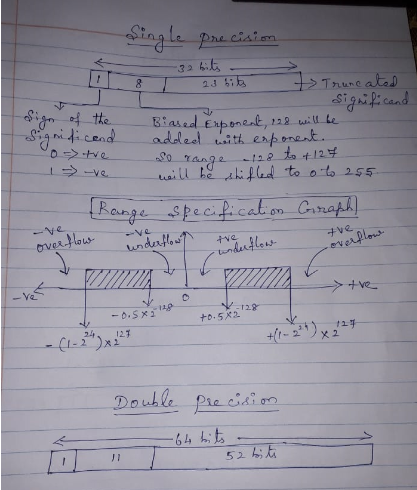 Single Precision
32 bits
1 8 23 bits → Truncated Significand
Sign of the Significand
0 ⇒ +ve
1 ⇒ -ve
Biased Exponent, 128 will be
added with exponent.
So range -128 to +127
will be shifted to 0 to 255
Range Specification Graph
-ve overflow
-ve underflow
+ve underflow
+ve overflow
-ve
0
+ve
-0.5×2^-128
+0.5×2^-128
-(1-2^24)×2^127
+(1-2^24)×2^127
Double Precision
64 bits
1 11 52 bits